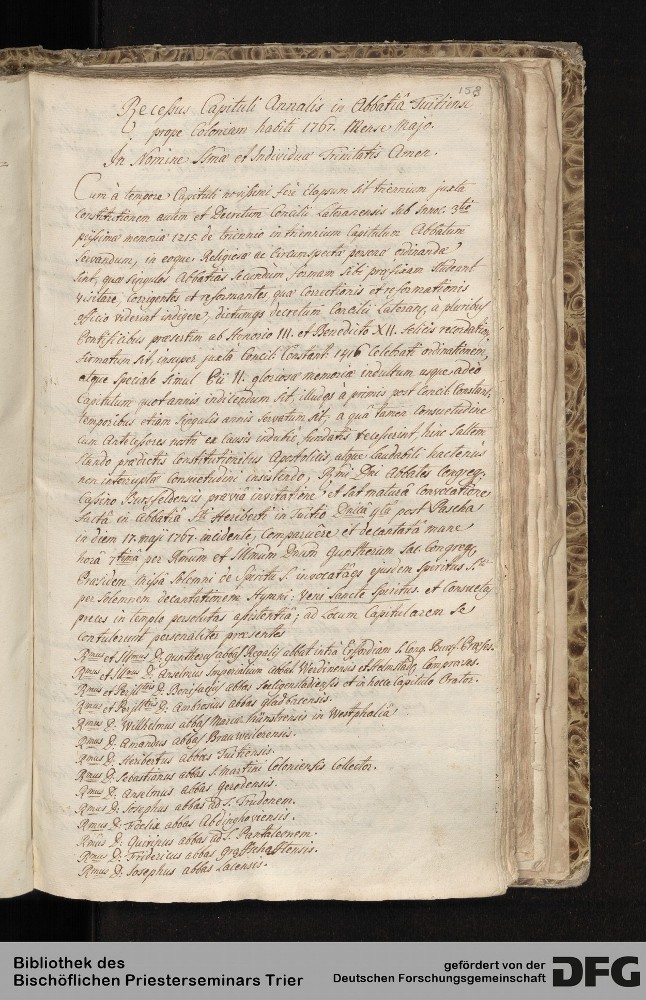 158
Recessus Capituli Annalis in Abbatiâ Tuitiensi
prope Coloniam habiti 1767. Mense Majo.
In Nomine Smæ et Individuæ Trinitatis Amen.
Cum à tempore Capituli novissimi ferè Elapsum sit triennium juxta
Constitutionem autem et Decretum Concilii Lateranensis sub Innoc. 3tio
piissimæ memoriæ 1215 de triennio in triennium Capitulum Abbatum
servandum, in eoque Religiosæ ac Circumspectæ personæ ordinandæ
sint, quæ singulas Abbatias secundùm formam sibi præfixam studeant
visitare, corrigentes et reformantes quæ correctionis et reformationis
officio viderint indigere, dictumqs decretum Concilii Lateran, à pluribus
Pontificibus præsertim ab Honorio III. et Benedicto XII. felicis recordation,
firmatum sit, insuper juxta Concil. Constant. 1416 Celebrati ordinationem,
atque speciale simul Pii II. gloriosæ memoriæ indultum usque adeò
Capitulum quotannis indicendum sit, illudqs à primis post Concil. Constant.
temporibus etiam singulis annis servatum sit; a quâ tamen consuetudine
cum Antecessores nostri ex causis indubiè fundatis recesserint, hinc saltem
stando prædictis Constitutionibus Apostolicis, atque laudabili hactenus
non interruptæ consuetudini insistendo, Rmi Dni Abbates Congreg.
Casino Bursfeldensis præviâ invitatione et sat maturâ Convocatione
factâ in abbatiâ Sti Heriberti in Tuitio Dnica 4ta post Pascha
in diem 17. maji 1767. incidente, Comparuêre et decantatâ mane
horâ 7timâ per Rmum et Illmum Dnum Guntherum Sac. Congreg.
Præsidem Missâ Solemni de Spiritu S. invocatâqs ejusdem Spiritus S.
per solemnem decantationem Hymni: Veni Sancte Spiritus. et Consuetas
preces in templo persolutas assistentiâ; ad Locum Capitularem se
contulerunt personaliter præsentes
Rmus et Illmus D. guntherus abbas Regalis abbat. intrâ Erfordiam S. Cong. Bursf. Præses.
Rmus et Illmus D. Anselmus Imperialium Abbat. Werdinensis et Helmstad. Compræses.
Rmus et Perillris D. Bonifacius abbas Seeligenstadiensis et in hocce Capitulo Orator.
Rmus et Perillris D. Ambrosius abbas gladbacensis.
Rmus D. Wilhelmus abbas Mariæ Münstrensis in Westphaliâ.
Rmus D. Amandus abbas Brauweilerensis.
Rmus D. Heribertus abbas Tuitiensis.
Rmus D. Sebastianus abbas S. Martini Coloniensis Collector.
Rmus D. Anselmus abbas gerodensis.
Rmus D. Josephus abbas ad S. Trudonem.
Rmus D. Felix abbas Abdinghoviensis.
Rmus D. Quirinus abbas ad S. Pantaleonem.
Rmus D. Fridericus abbas graffschafftensis.
Rmus D. Josephus abbas Lacensis.
Bibliothek des
Bischöflichen Priesterseminars Trier
gefördert von der
Deutschen Forschungsgemeinschaft
DFG